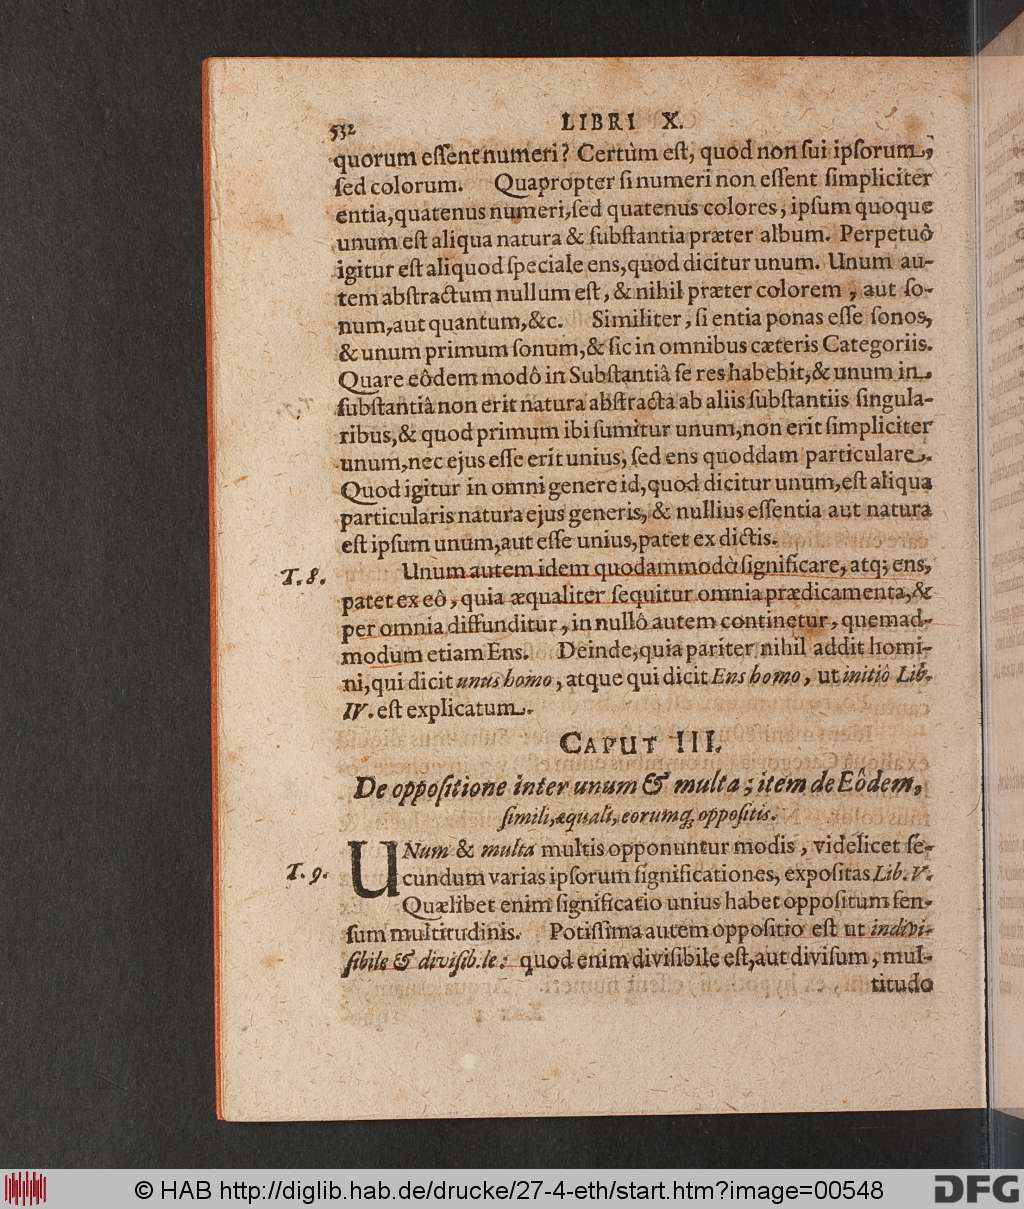 532 LIBRI X.
quorum eſſent numeri? Certùm eſt, quod non ſui ipſorum,
ſed colorum. Quapropter ſi numeri non eſſent ſimpliciter
entia, quatenus numeri, ſed quatenus colores, ipſum quoque
unum eſt aliqua natura & ſubſtantia præter album. Perpetuò
igitur eſt aliquod ſpeciale ens, quod dicitur unum. Unum au-
tem abſtractum nullum eſt, & nihil præter colorem, aut ſo-
num, aut quantum, &c. Similiter, ſi entia ponas eſſe ſonos,
& unum primum ſonum, & ſic in omnibus cæteris Categoriis.
Quare eôdem modô in Subſtantiâ ſe res habebit, & unum in
ſubſtantiâ non erit natura abſtracta ab aliis ſubſtantiis ſingula-
ribus, & quod primum ibi ſumitur unum, non erit ſimpliciter
unum, nec ejus eſſe erit unius, ſed ens quoddam particulare.
Quod igitur in omni genere id, quod dicitur unum, eſt aliqua
particularis natura ejus generis, & nullius eſſentia aut natura
eſt ipſum unum, aut eſſe unius, patet ex dictis.
T. 8. Unum autem idem quodammodò ſignificare, atq; ens,
patet ex eô, quia æqualiter ſequitur omnia prædicamenta, &
per omnia diffunditur, in nullô autem continetur, quemad-
modum etiam Ens. Deinde, quia pariter nihil addit homi-
ni, qui dicit unus homo, atque qui dicit Ens homo, ut initiô Lib.
IV. eſt explicatum.
CAPUT III.
De oppoſitione inter unum & multa; item de Eôdem,
ſimili, æquali, eorumq; oppoſitis.
T. 9. UNum & multa multis opponuntur modis, videlicet ſe-
cundum varias ipſorum ſignificationes, expoſitas Lib. V.
Quælibet enim ſignificatio unius habet oppoſitum ſen-
ſum multitudinis. Potiſſima autem oppoſitio eſt ut indivi-
ſibile & diviſib.le: quod enim diviſibile eſt, aut diviſum, mul-
titudo
© HAB http://diglib.hab.de/drucke/27-4-eth/start.htm?image=00548 DFG